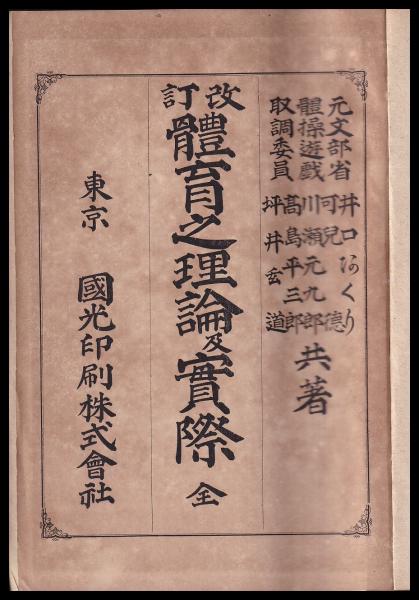 元文部省
體操遊戲
取調委員
井口あくり
可兒德
川瀨元九郎
高島平三郎
坪井玄道
共著
改訂
體育之理論及實際 全
東京 國光印刷株式會社